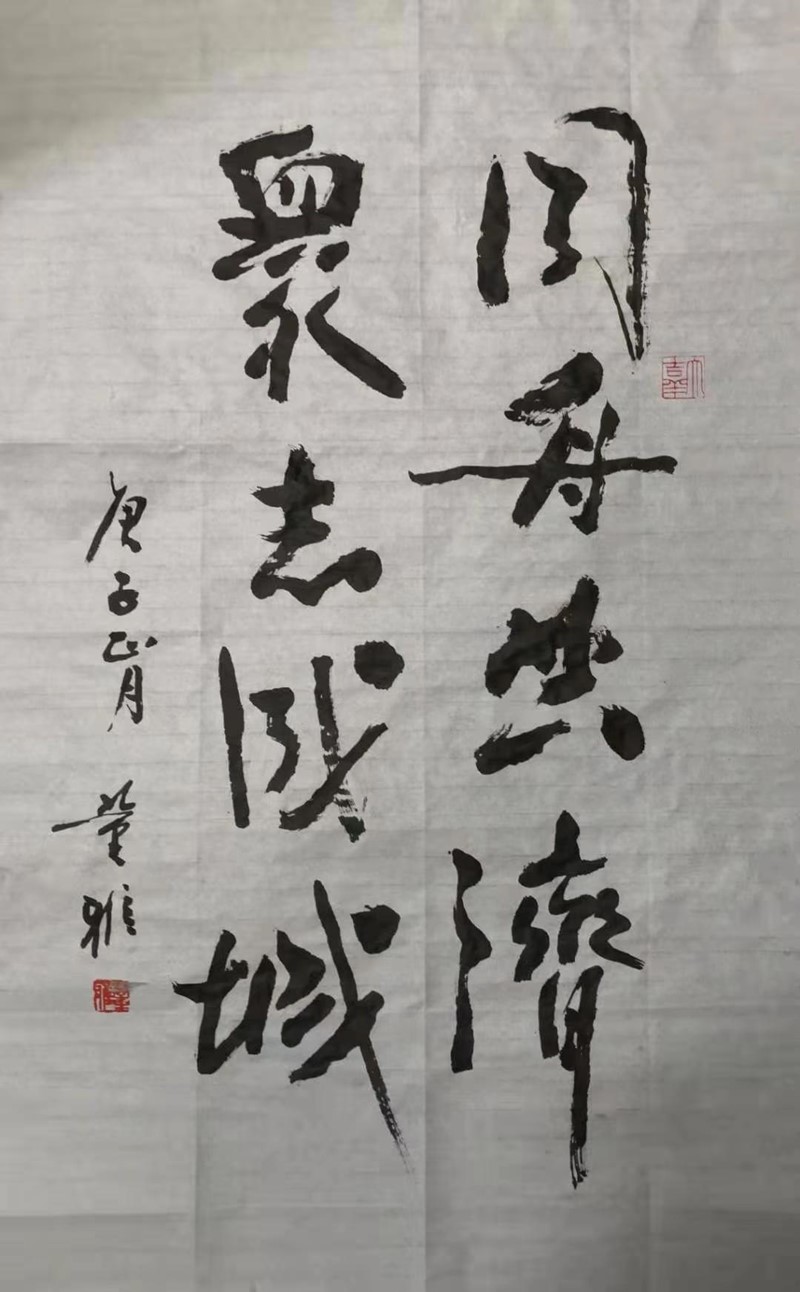 同舟共濟
眾志成城
庚子正月 董雅